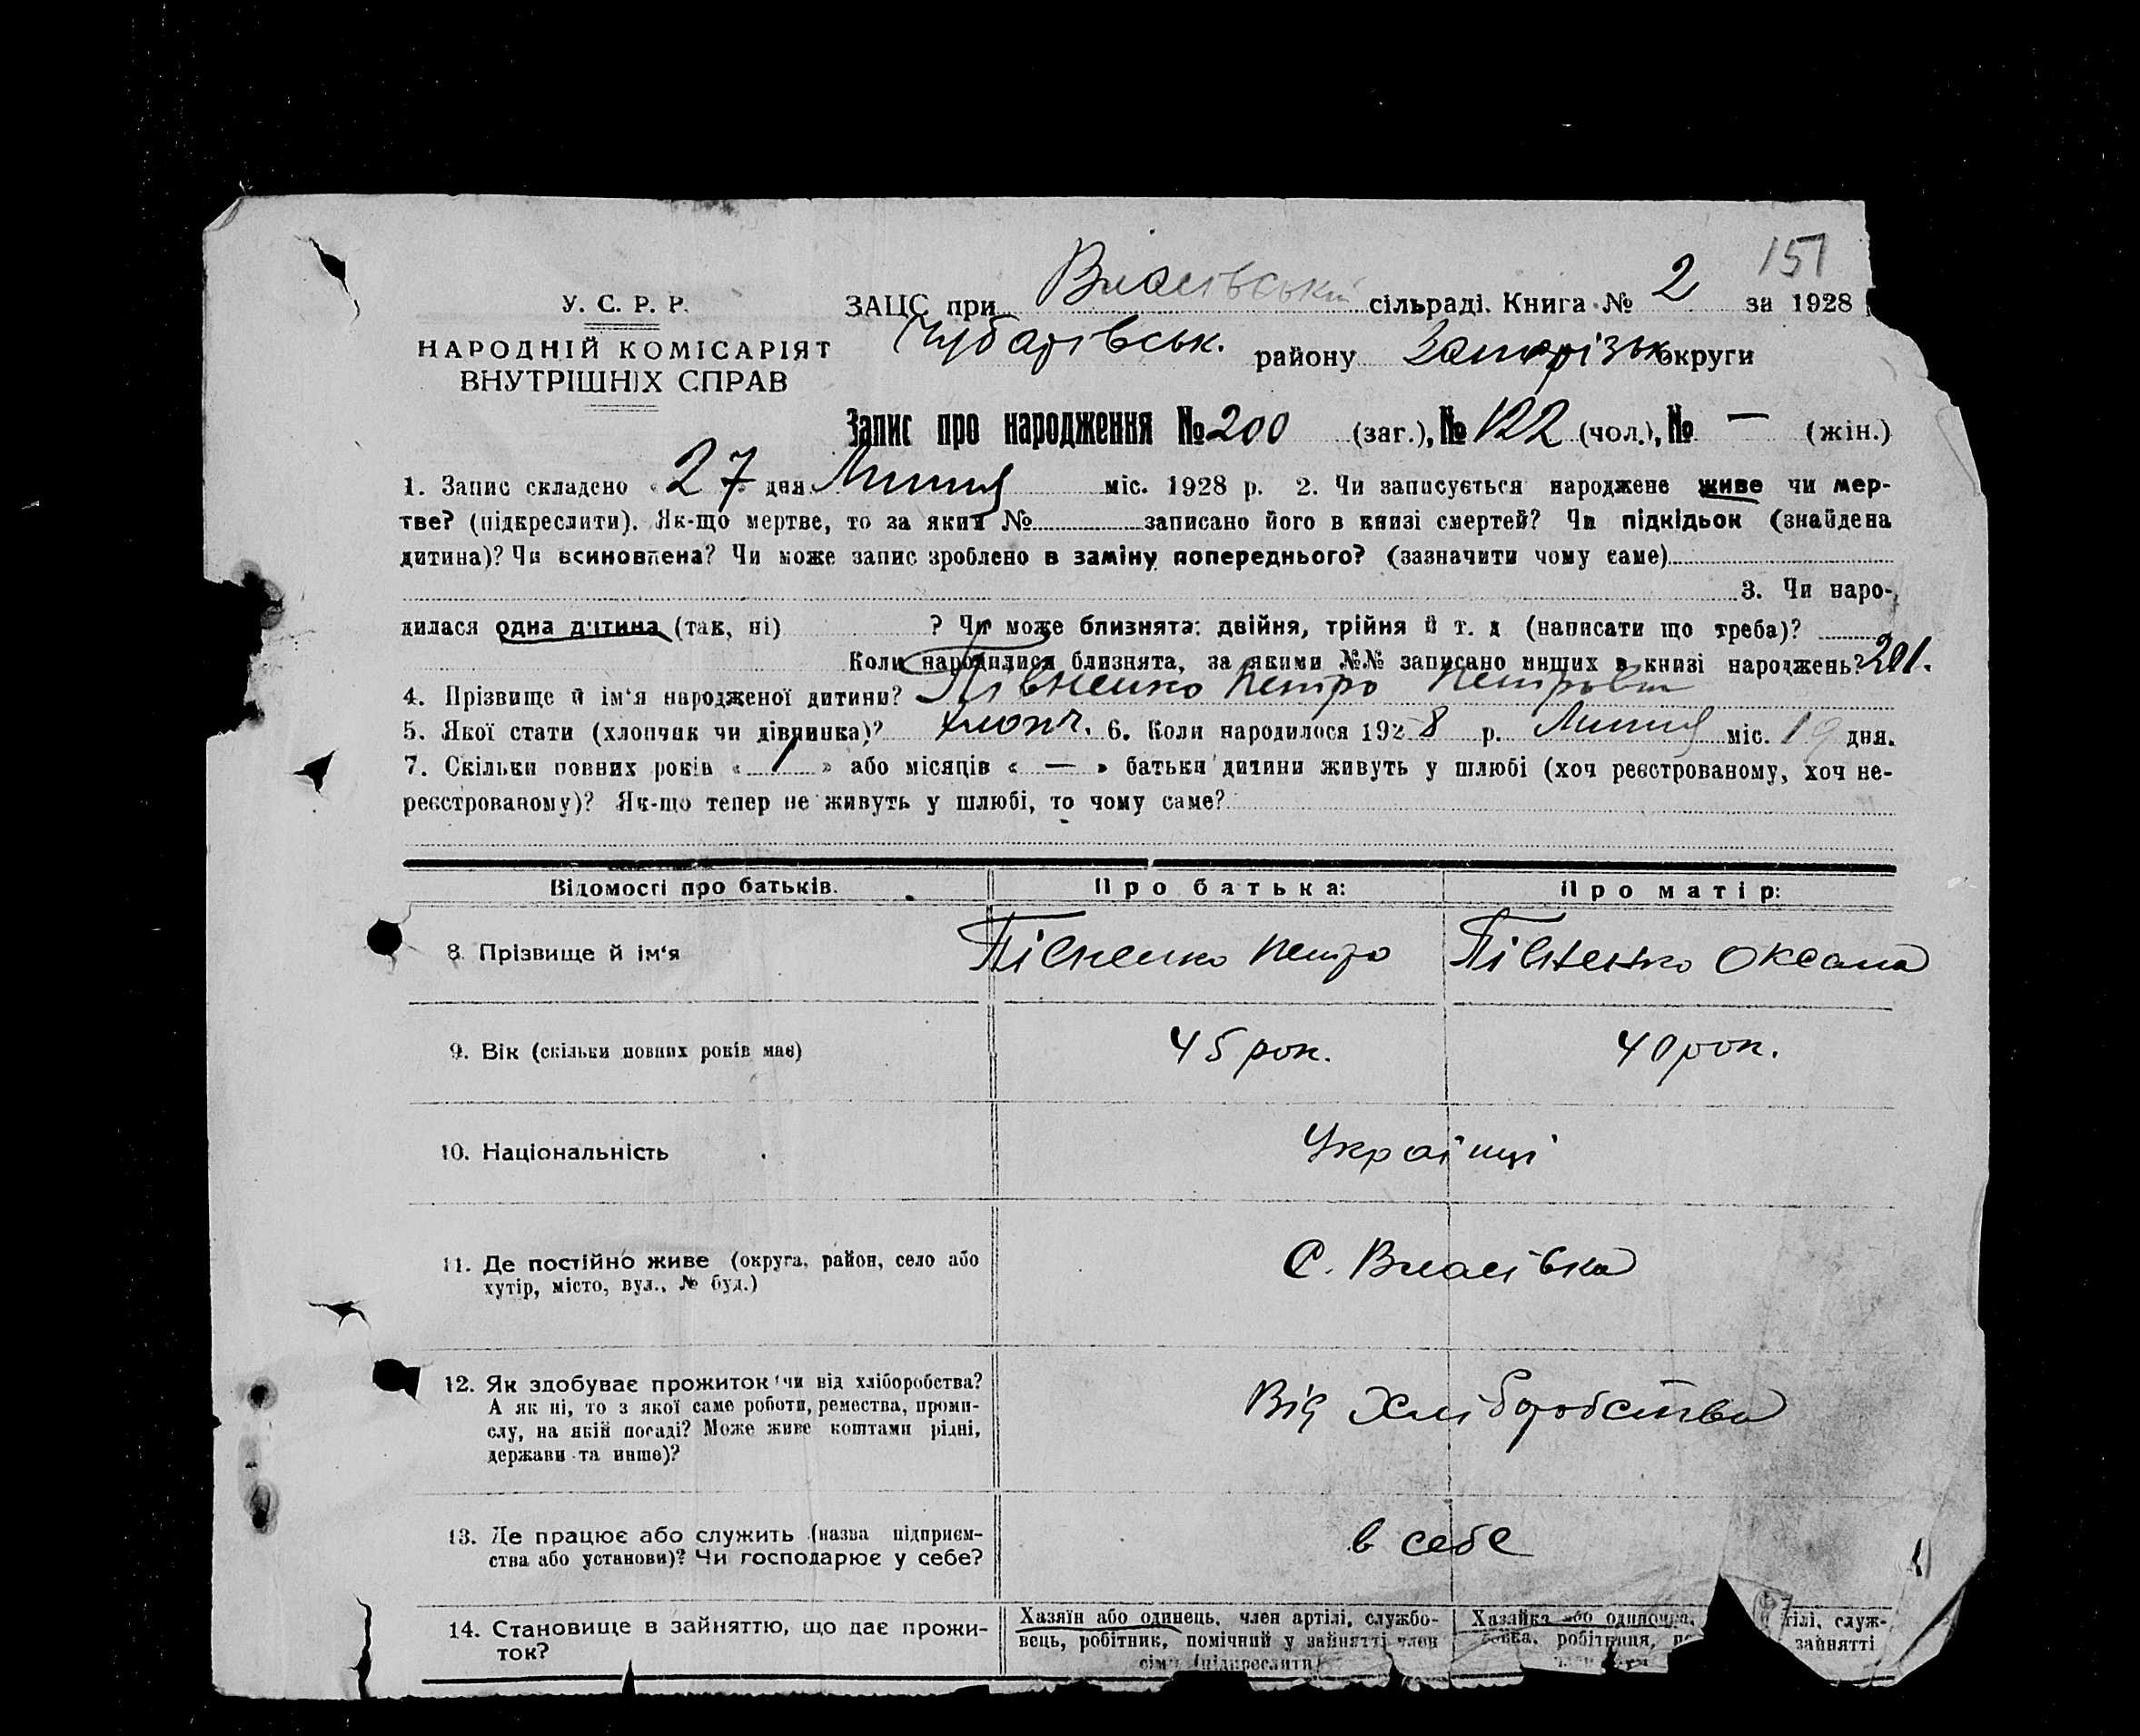 151
У. С. Р. Р.
НАРОДНІЙ КОМІСАРІЯТ
ВНУТРІШНІХ СПРАВ
ЗАЦС при Власівській сільраді. Книга № 2 за 1928
Чубарівськ. району Запорізьк округи
Запис про народження № 200 (заг.), № 122 (чол.), № — (жін.)
1. Запис складено « 27 » дня Липня міс. 1928 р. 2. Чи записується народжене живе чи мер-
тве? (підкреслити). Як-що мертве, то за яким № записано його в книзі смертей? Чи підкідьок (знайдена
дитина)? Чи всиновлена? Чи може запис зроблено в заміну попереднього? (зазначити чому саме)
3. Чи наро-
дилася одна дитина (так, ні) ? Чи може близнята: двійня, трійня й т. д (написати що треба)?
Коли народилися близнята, за якими №№ записано инших в книзі народжень? 201.
4. Прізвище й ім‘я народженої дитини? Півненко Петро Петрович
5. Якої статі (хлопчик чи дівчинка)? хлопч. 6. Коли народилося 1928 р. Липня міс. 19 дня.
7. Скільки повних років « 1 » або місяців « — » батьки дитини живуть у шлюбі (хоч реєстрованому, хоч не-
реєстрованому)? Як-що тепер не живуть у шлюбі, то чому саме?
Відомості про батьків. Про батька: Про матір:
8. Прізвище й ім‘я Півненко Петро Півненко Оксана
9. Вік (скільки повних років має) 45 рок. 40 рок.
10. Національність Українці
11. Де постійно живе (округа, район, село або С. Власівка
хутір, місто, вул., № буд.)
12. Як здобуває прожиток чи від хліборобства? Від Хліборобства
А як ні, то з якої саме роботи, ремества, проми-
слу, на якій посаді? Може живе коштами рідні,
держави та инше)?
13. Де працює або служить (назва підприєм- в себе
ства або установи)? Чи господарює у себе?
14. Становище в зайняттю, що дає прожи- Хазяїн або одинець, член артілі, службо- Хазяйка або одиночка, тілі, служ-
ток? вець, робітник, помічний у зайнятті член робітниця, зайнятті
сім‘ї (підкреслити)